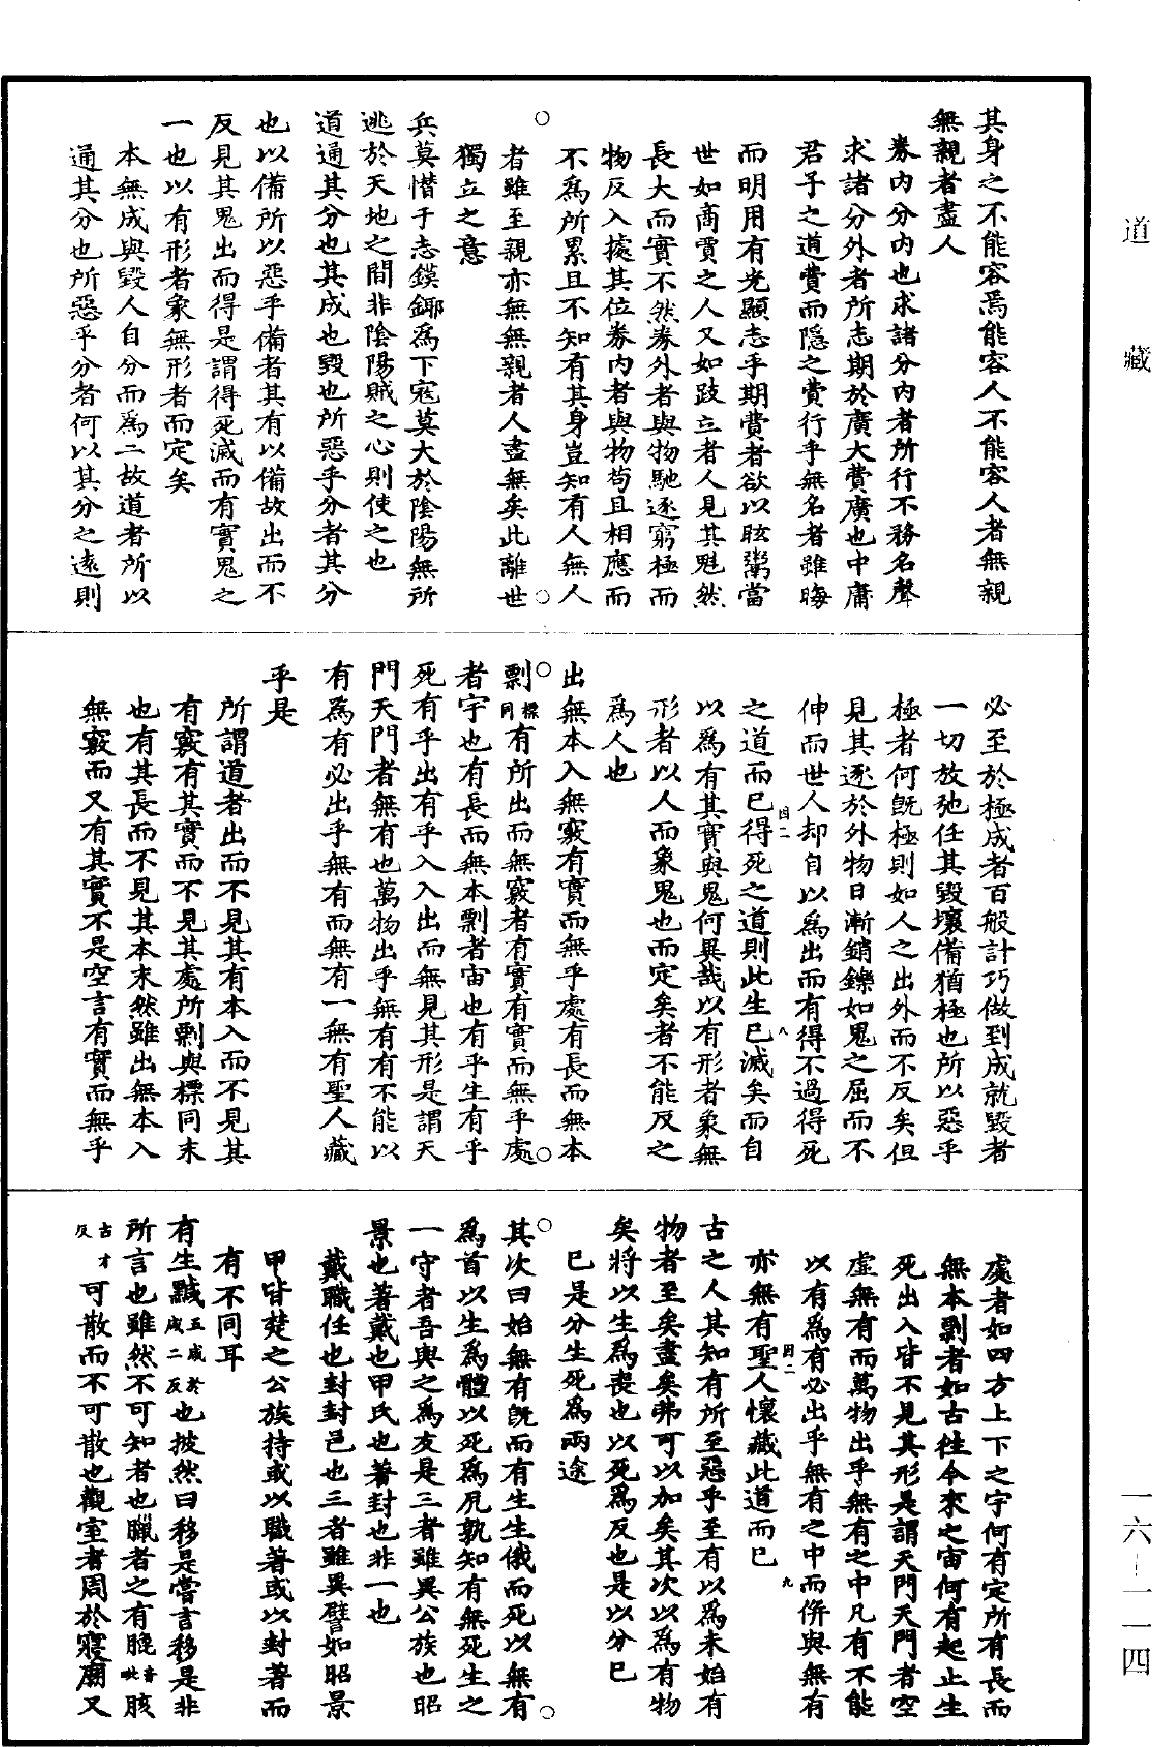 道藏
其身之不能容焉能容人不能容人者無親
無親者盡人
券內分內也求諸分內者所行不務名聲
求諸分外者所志期於廣大費廣也中庸
君子之道費而隱之費行乎無名者雖晦
而明用有光顯志乎期費者欲以眩鬻當
世如商賈之人又如跂立者人見其魁然
長大而實不然券外者與物馳逐窮極而
物反入據其位券內者與物苟且相應而
不為所累且不知有其身豈知有人無人
○者雖至親亦無無親者人盡無矣此離世○
獨立之意
兵莫憯于志鏌鋣為下寇莫大於陰陽無所
逃於天地之間非陰陽賊之心則使之也
道通其分也其成也毀也所惡乎分者其分
也以備所以惡乎備者其有以備故出而不
反見其鬼出而得是謂得死滅而有實鬼之
一也以有形者象無形者而定矣
本無成與毀人自分而為二故道者所以
通其分也所惡乎分者何以其分之遠則
必至於極成者百般計巧做到成就毀者
一切放弛任其毀壞備猶極也所以惡乎
極者何既極則如人之出外而不反矣但
見其逐於外物日漸銷鑠如鬼之屈而不
伸而世人却自以為出而有得不過得死
之道而已得死之道則此生已滅矣而自
以為有其實與鬼何異哉以有形者象無
形者以人而象鬼也而定矣者不能反之
為人也
出無本入無竅有實而無乎處有長而無本
○剽標同有所出而無竅者有實有實而無乎處○
者宇也有長而無本剽者宙也有乎生有乎
死有乎出有乎入入出而無見其形是謂天
門天門者無有也萬物出乎無有有不能以
有為有必出乎無有而無有一無有聖人藏
乎是
所謂道者出而不見其有本入而不見其
有竅有其實而不見其處所剽與標同末
也有其長而不見其本末然雖出無本入
無竅而又有其實不是空言有實而無乎
處者如四方上下之宇何有定所有長而
無本剽者如古往今來之宙何有起止生
死出入皆不見其形是謂天門天門者空
虛無有而萬物出乎無有之中凡有不能
以有為有必出乎無有之中而併與無有
亦無有聖人懷藏此道而已
古之人其知有所至惡乎至有以為未始有
物者至矣盡矣弗可以加矣其次以為有物
矣將以生為喪也以死為反也是以分已
已是分生死為兩途
○其次曰始無有既而有生生俄而死以無有○
為首以生為體以死為尻孰知有無死生之
一守者吾與之為友是三者雖異公族也昭
景也著戴也甲氏也著封也非一也
戴職任也封封邑也三者雖異譬如昭景
甲皆楚之公族持或以職著或以封著而
有不同耳
有生黬五咸於咸二反也披然曰移是嘗言移是非
所言也雖然不可知者也臘者之有膍音毗胲
古才反可散而不可散也觀室者周於寢廟又
一六——一四